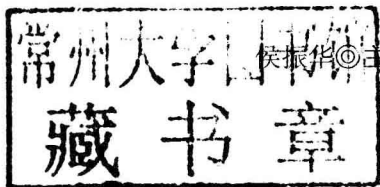 常州大学图书馆
侯振华◎主
藏书章